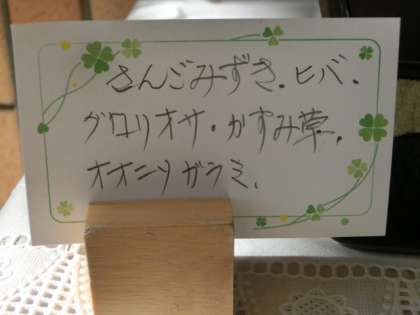 さんごみずき.ヒバ.
グロリオサ・かすみ草.
オオニソガラミ.